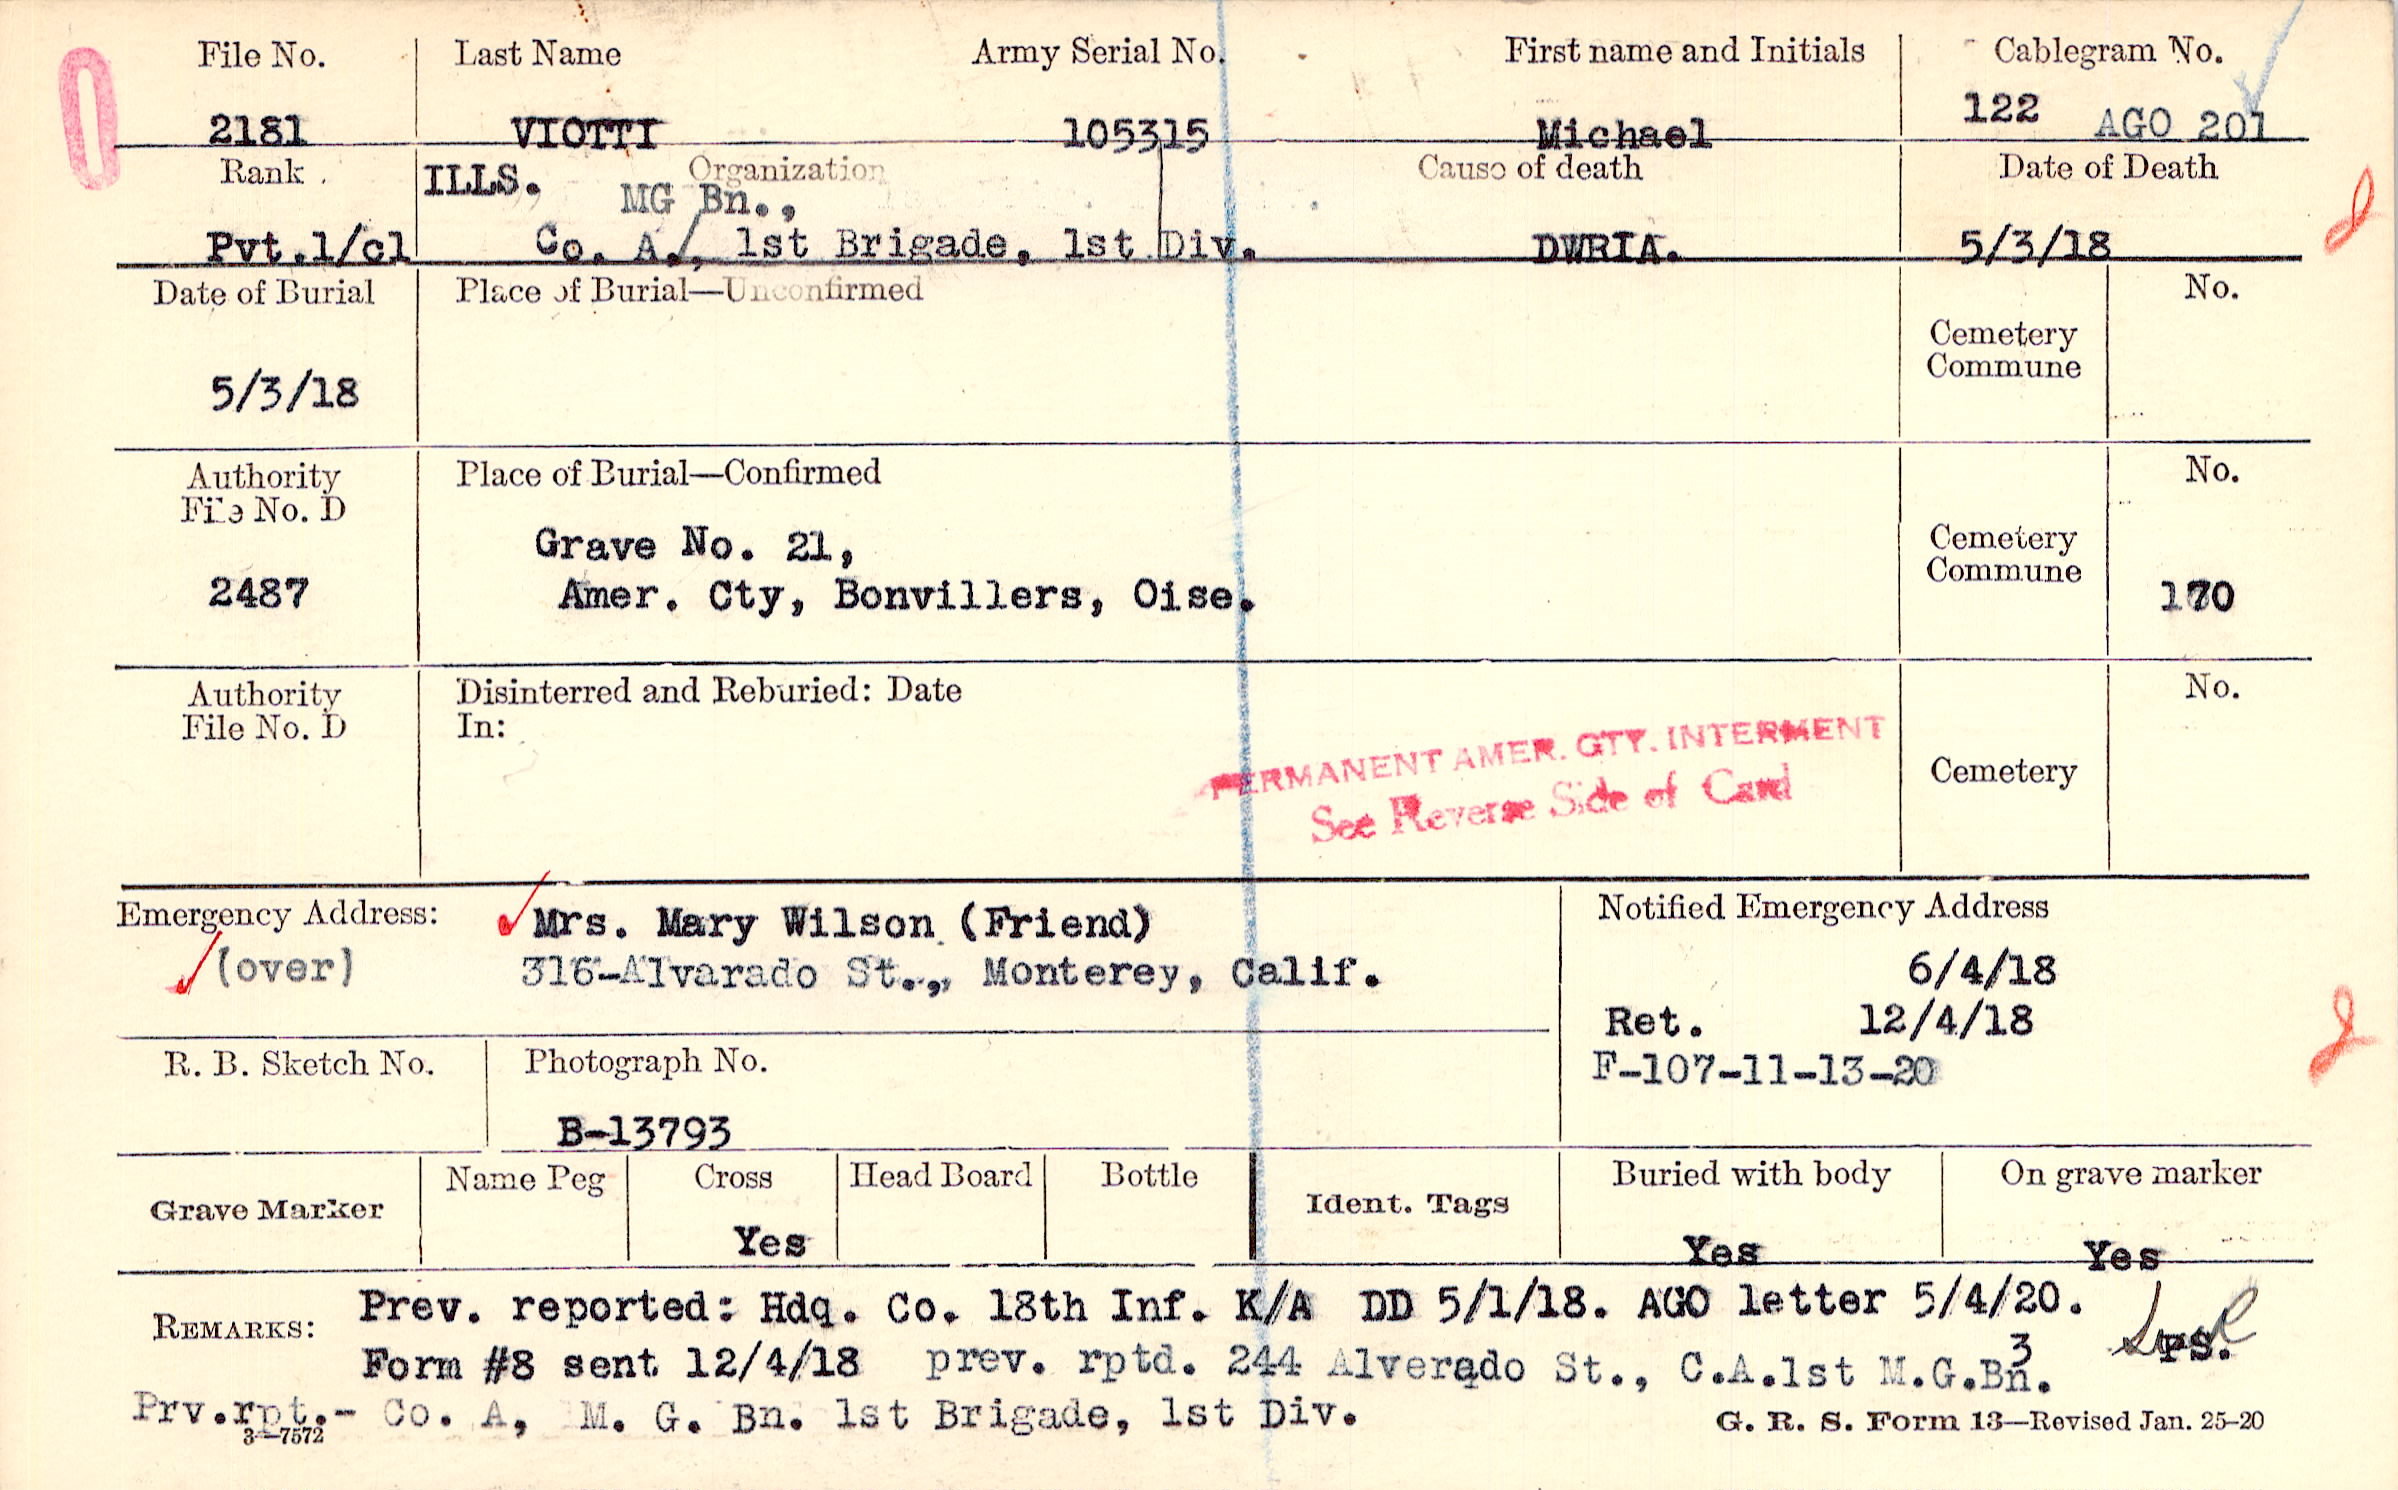 File No. Last Name Army Serial No. First name and Initials Cablegram No.
2181 VIOTTI 105315 Michael 122 AGO 201
Rank ILLS. Organization Cause of death Date of Death
MG Bn.,
Pvt.1/cl Co. A./, 1st Brigade, 1st Div. DWRIA. 5/3/18
Date of Burial Place of Burial—Unconfirmed No.
Cemetery
Commune
5/3/18
Authority Place of Burial—Confirmed No.
File No. D
Grave No. 21, Cemetery
2487 Amer. Cty, Bonvillers, Oise. Commune 170
Authority Disinterred and Reburied: Date No.
File No. D In:
PERMANENT AMER. CTY. INTERMENT
See Reverse Side of Card
Cemetery
Emergency Address: Mrs. Mary Wilson (Friend) Notified Emergency Address
(over) 316-Alvarado St.,, Monterey, Calif. 6/4/18
Ret. 12/4/18
R. B. Sketch No. Photograph No. F-107-11-13-20
B-13793
Grave Marker Name Peg Cross Head Board Bottle Ident. Tags Buried with body On grave marker
Yes Yes Yes
REMARKS: Prev. reported: Hdq. Co. 18th Inf. K/A DD 5/1/18. AGO letter 5/4/20.
PS.
Form #8 sent 12/4/18 prev. rptd. 244 Alverado St., C.A.1st M.G.Bn. 3
Prv.rpt.- Co. A, M. G. Bn. 1st Brigade, 1st Div.
3—7572 G. R. S. Form 13—Revised Jan. 25-20